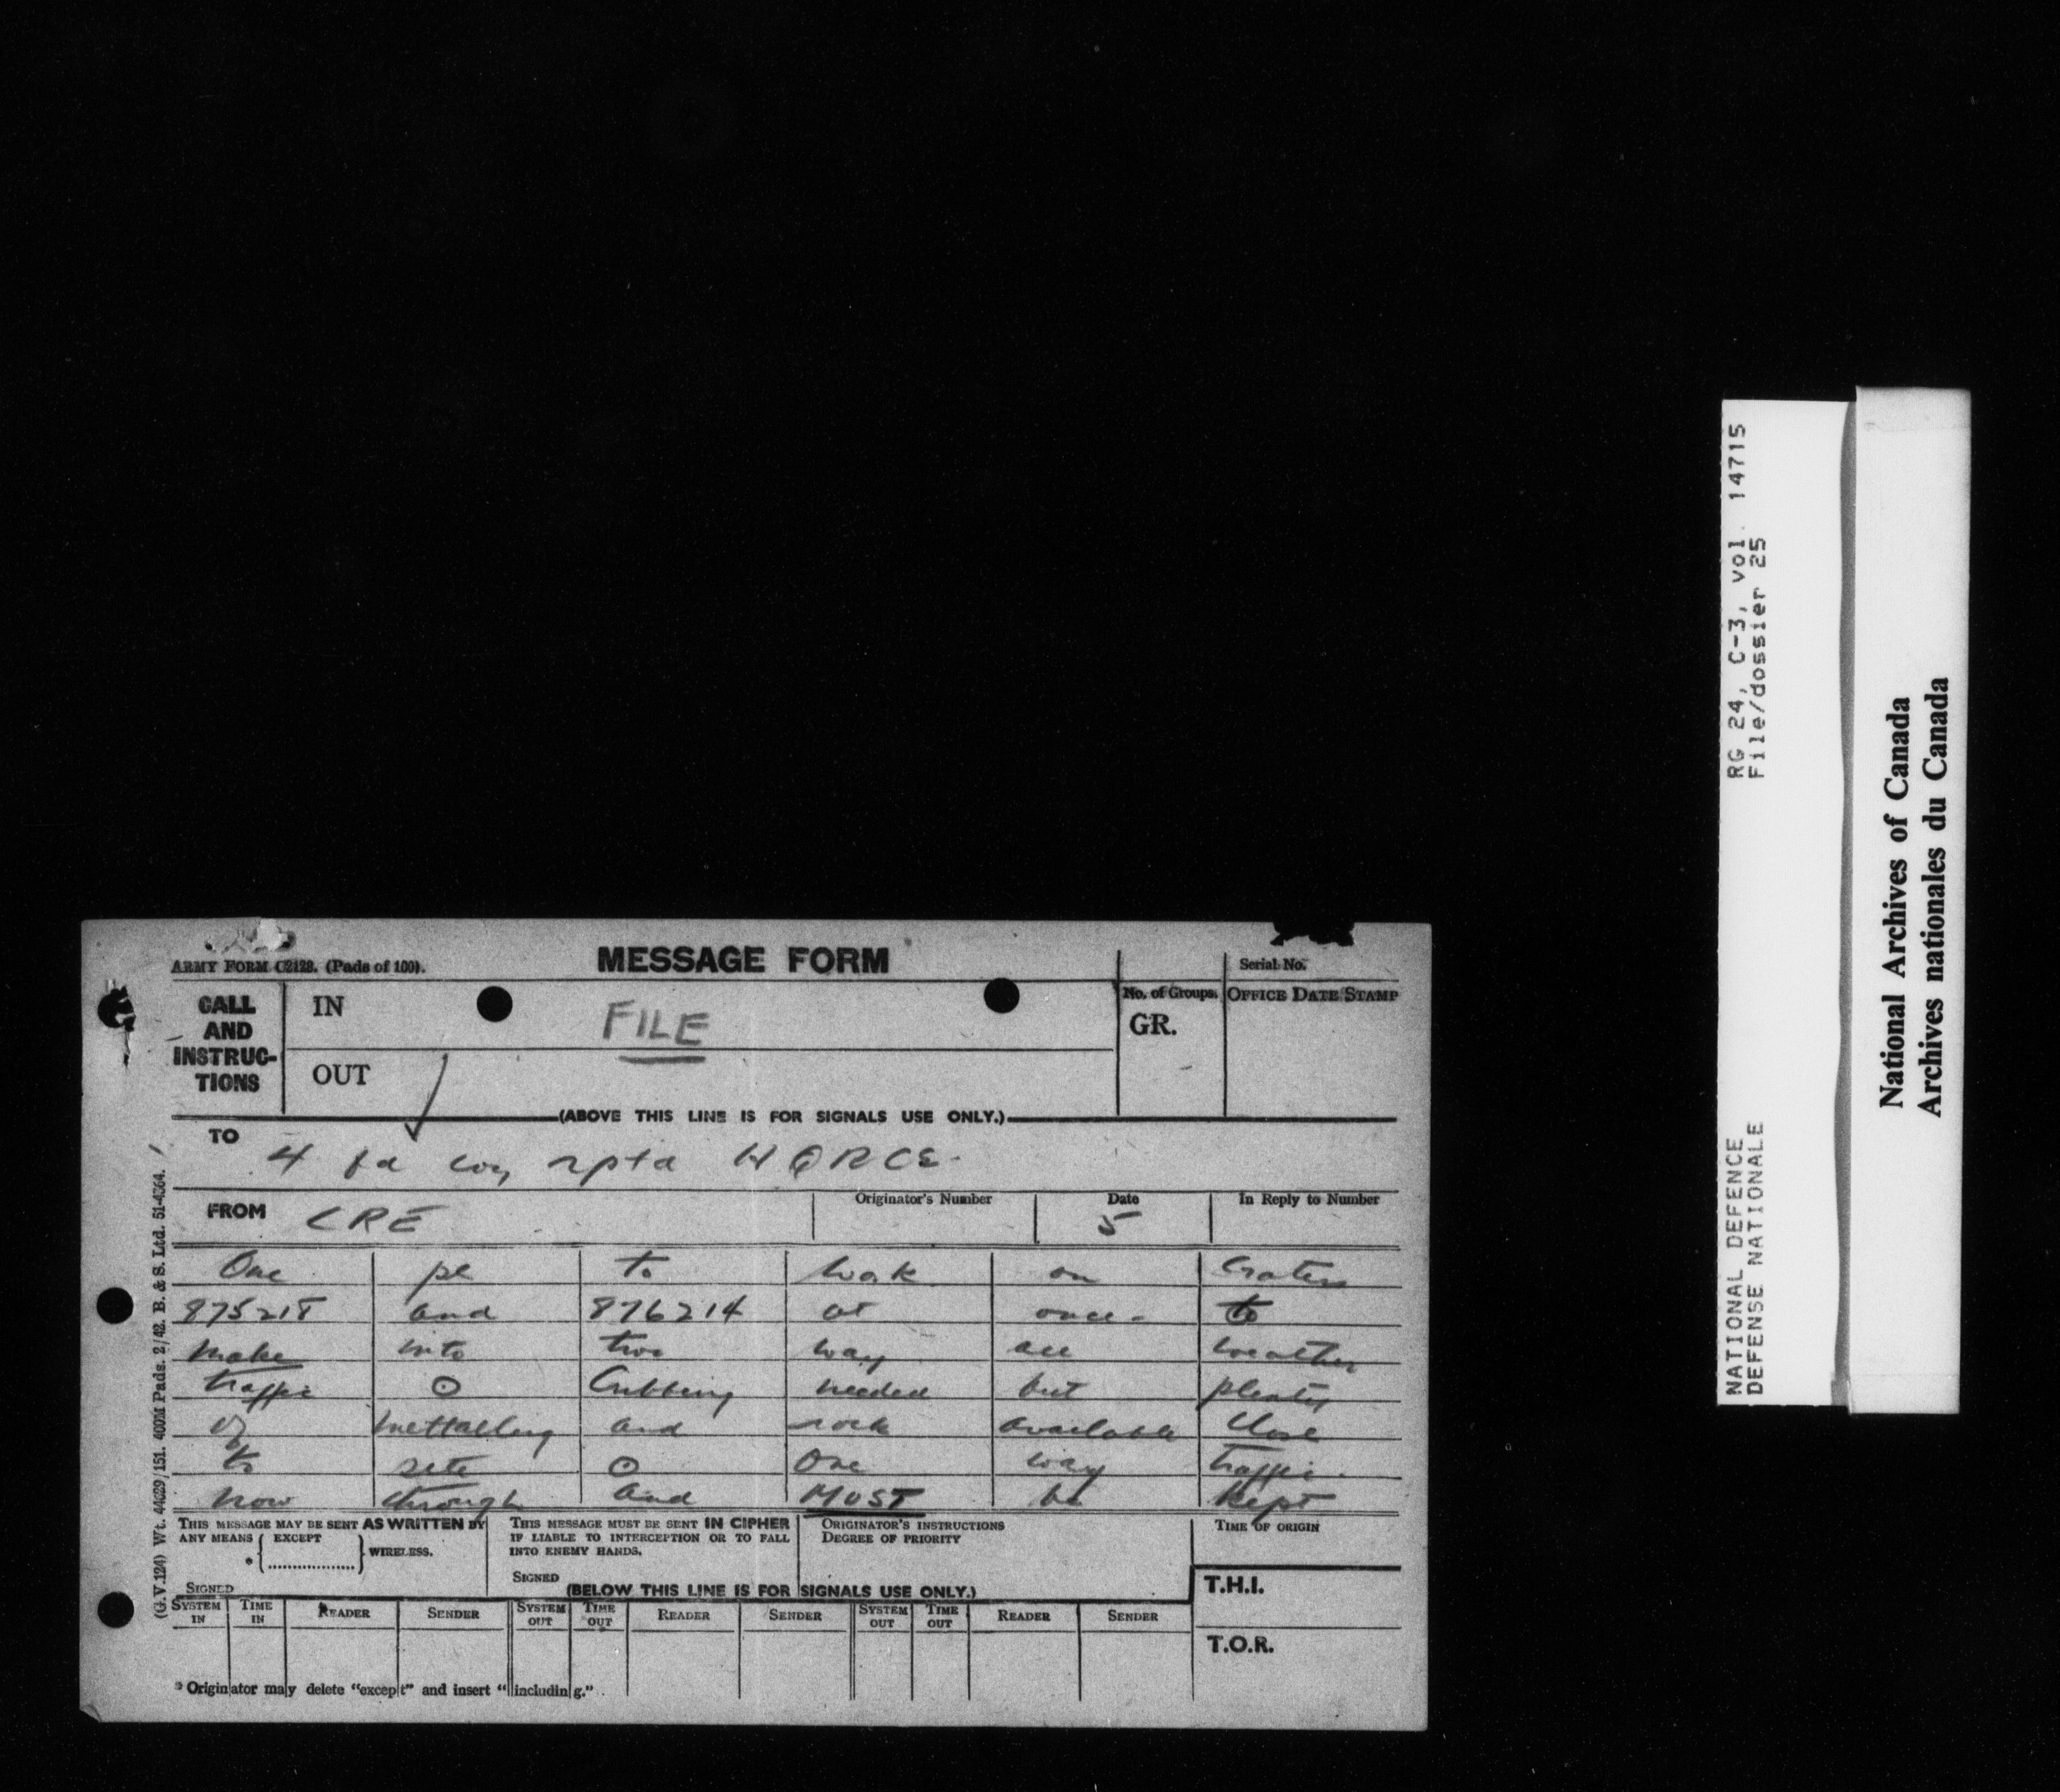 ARMY FORM C2128. (Pads of 100).
MESSAGE FORM
Serial No.
CALL AND INSTRUC-TIONS
IN
FILE
No. of Groups.
GR.
OFFICE DATE STAMP
OUT
(ABOVE THIS LINE IS FOR SIGNALS USE ONLY.)
TO 4 fd coy rptd HQRCE
FROM CRE
Originator's Number
Date 5
In Reply to Number
One pl to work on Craters
875218 and 876214 at once - to
make into two way all weather
traffic O Cribbing needed but plenty
of mettalling and rock available close
to site O One way traffic
now through and MUST be kept
THIS MESSAGE MAY BE SENT AS WRITTEN BY
ANY MEANS EXCEPT
* WIRELESS.
SIGNED
THIS MESSAGE MUST BE SENT IN CIPHER
IF LIABLE TO INTERCEPTION OR TO FALL
INTO ENEMY HANDS.
SIGNED
ORIGINATOR'S INSTRUCTIONS
DEGREE OF PRIORITY
TIME OF ORIGIN
(BELOW THIS LINE IS FOR SIGNALS USE ONLY.)
T.H.I.
SYSTEM IN TIME IN READER SENDER SYSTEM OUT TIME OUT READER SENDER SYSTEM OUT TIME OUT READER SENDER
T.O.R.
* Originator may delete "except" and insert "including."
(G.V.124) Wt. 44629/151. 400M Pads. 2/42. B. & S. Ltd. 51-4364.
RG 24, C-3, vol. 14715
File/dossier 25
NATIONAL DEFENCE
DEFENSE NATIONALE
National Archives of Canada
Archives nationales du Canada